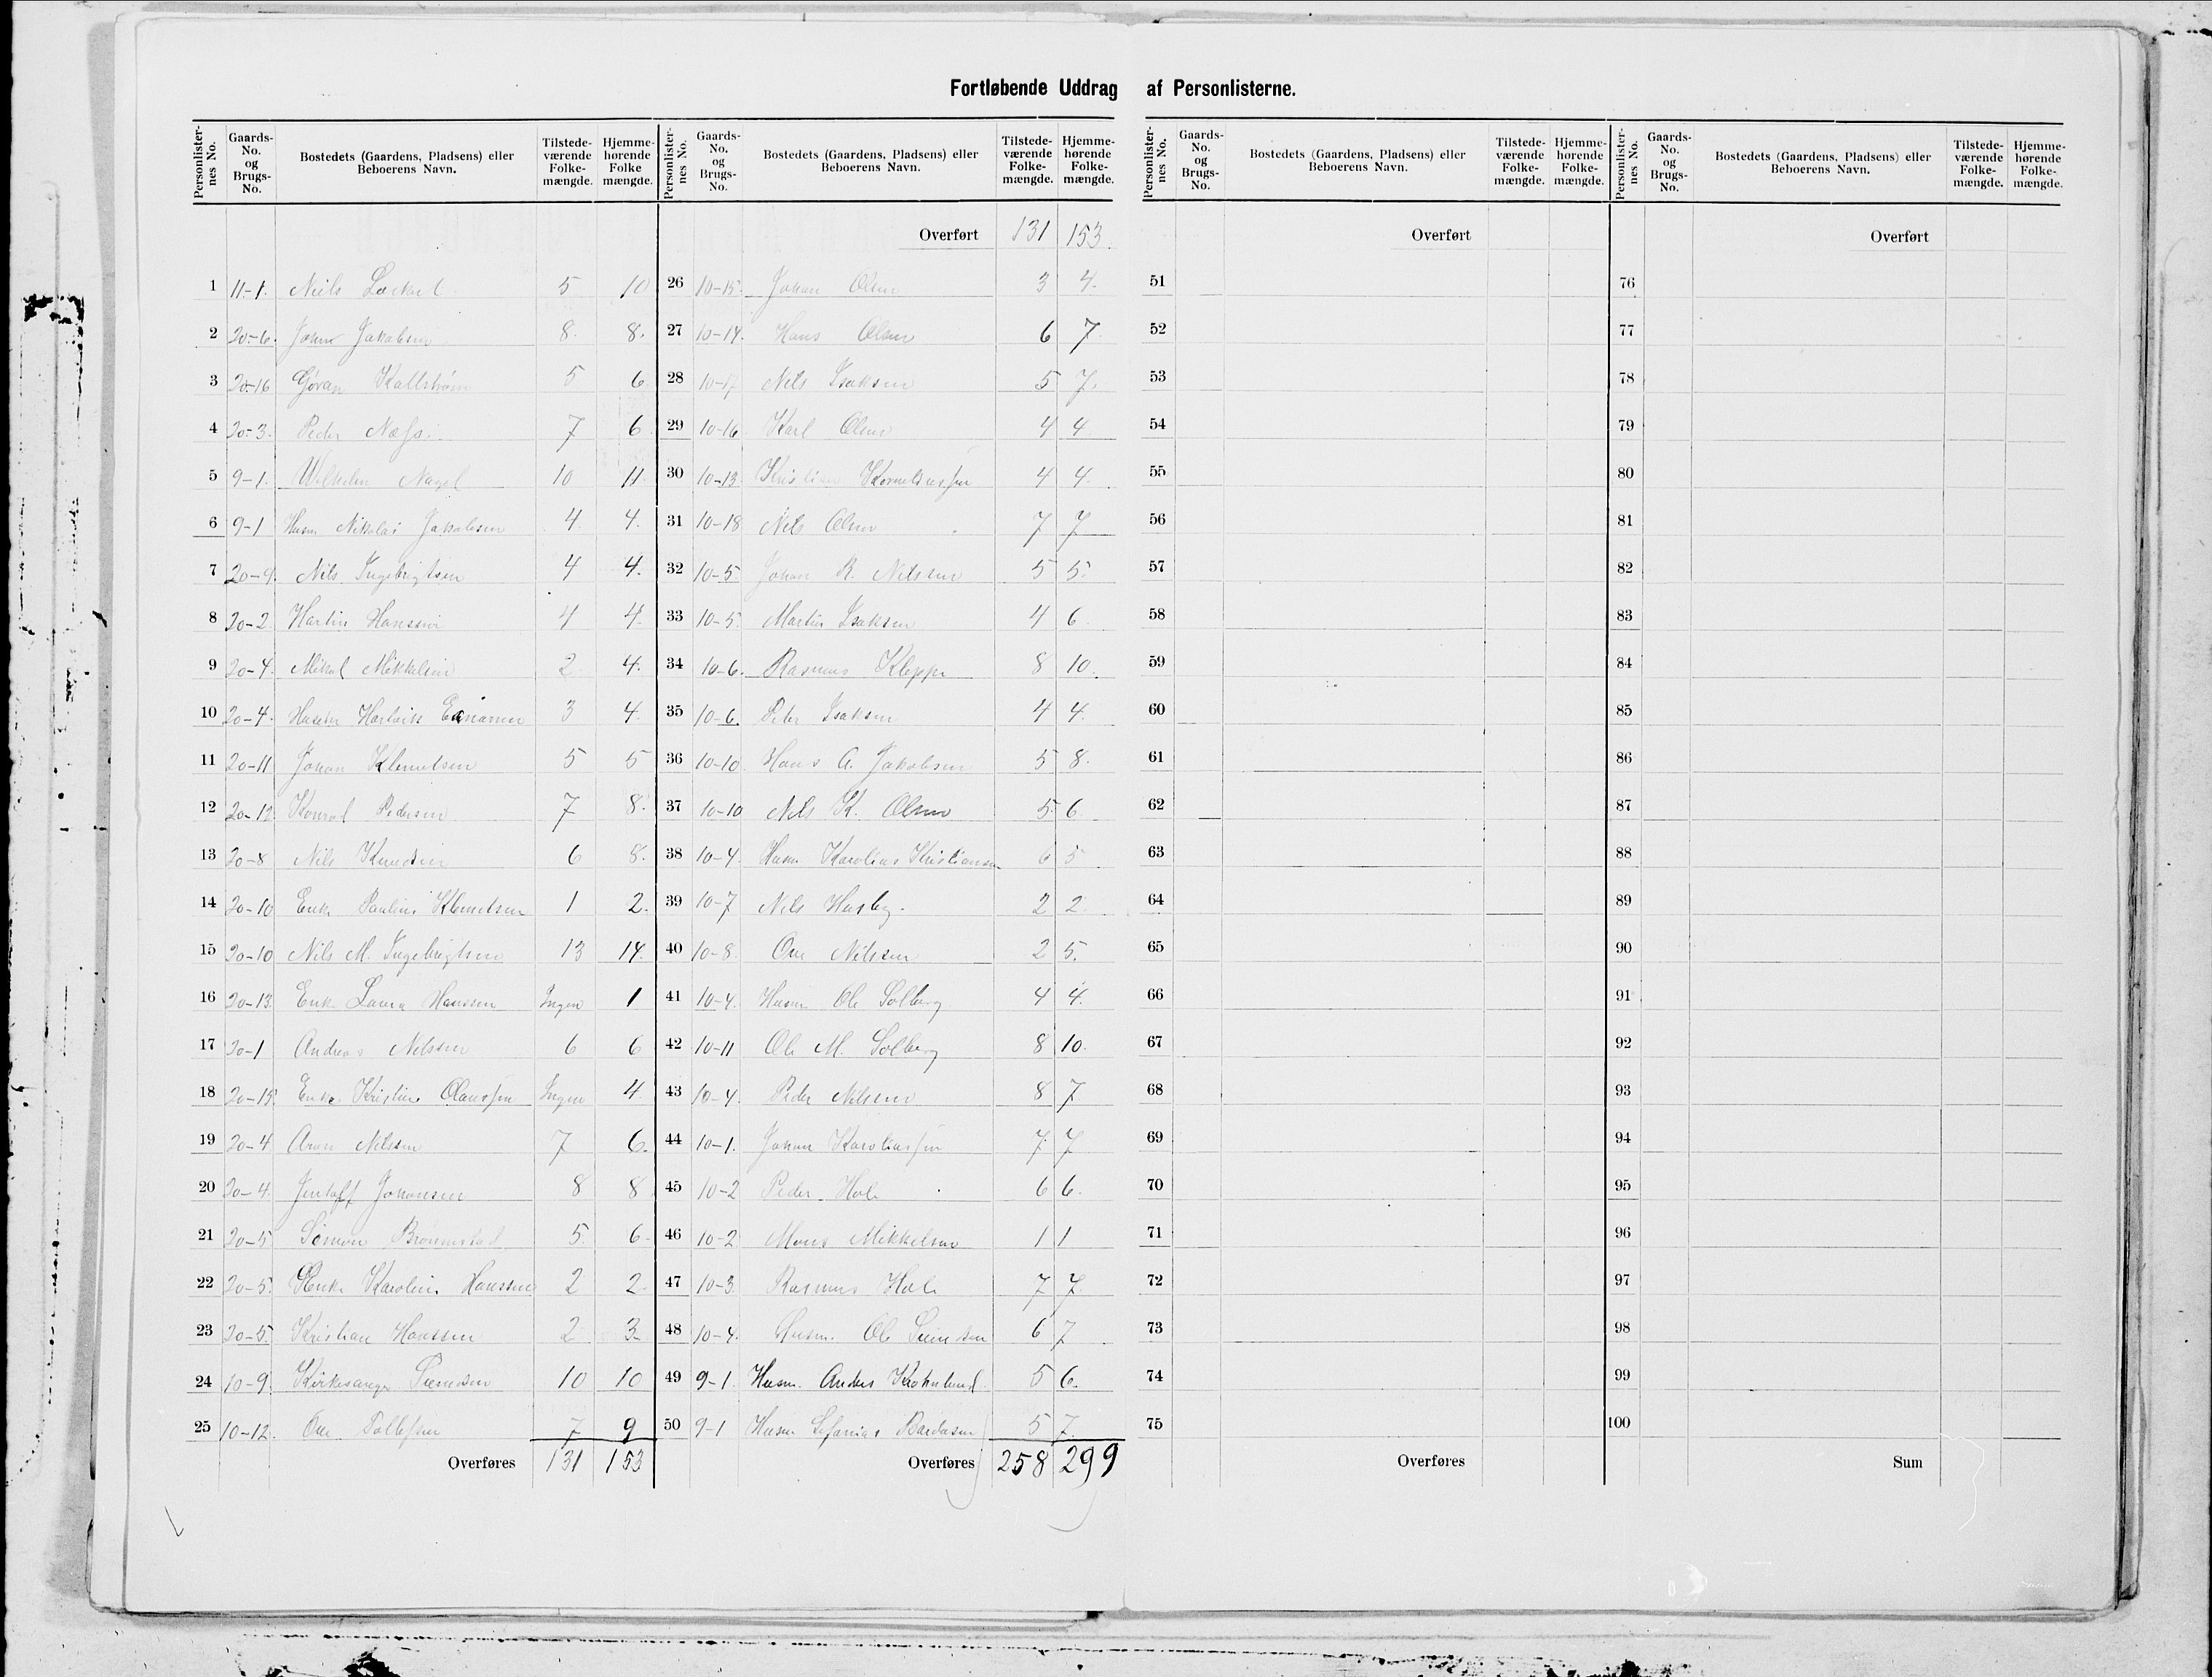 Fortløbende Uddrag af Personlisterne.
Personlister-nes No. Gaards-No. og Brugs-No. Bostedets (Gaardens, Pladsens) eller Beboerens Navn. Tilstede-værende Folke-mængde. Hjemme-hørende Folke mængde.
1 11-1. Niels 5 10
2 20-6. Johan Jakobsen 8. 8.
3 20-16 Gøran Kallstrøm 5 6
4 20-3. Peder Næss. 7 6
5 9-1. Wilhelm Nagel 10 11.
6 9-1 Husm Nikolai Jakobsen 4. 4.
7 20-9. Nils Ingebrigtsen 4 4.
8 20-2. Martin Hanssen 4 4.
9 20-4. Mikal Mikkelsen 2. 4.
10 20-4. Hartvik 3 4.
11 20-11 Johan Klemetsen 5 5
12 20-12. Konrad Pedersen 7 8.
13 20-8 Nils Knudsen 6 8.
14 20-10 Enke Pauline Klemetsen 1 2.
15 20-10 Nils M. Ingebrigtsen 13 14.
16 20-13. Enke Laura Hanssen Ingen 1
17 20-1 Andreas Nilssen 6 6
18 20-15. Enke Kristine Olaussen Ingen 4
19 20-4. Aron Nilssen 7 6.
20 20-4. Jentoft Johansen 8 8
21 20-5 Simon Brønmstad 5. 6.
22 20-5. Enke Karoline Hanssen 2 2.
23 20-5. Kristian Hanssen 2 3.
24 10-9. Kirkesanger Svendsen 10 10
25 10-12. Ole Tollefsen 7 9
Overføres 131 153
Personlister-nes No. Gaards-No. og Brugs-No. Bostedets (Gaardens, Pladsens) eller Beboerens Navn. Tilstede-værende Folke-mængde. Hjemme-hørende Folke-mængde.
Overført 131 153.
26 10-15. Johan Olsen 3 4.
27 10-14. Hans Olsen 6 7.
28 10-17 Nils Isaksen 5 7.
29 10-16. Karl Olsen 4 4
30 10-13. Kristian Korneliussen 4 4.
31 10-18 Nils Olsen 7 7
32 10-5. Johan R. Nilssen 5 5.
33 10-5 Martin Isaksen 4 6.
34 10-6. Rasmus Kleppe 8 10.
35 10-6. Peter Isaksen 4 4.
36 10-10 Hans A. Jakobsen 5 8.
37 10-10 Nils K. Olsen 5. 6.
38 10-4. Husm Karolius Kristiansen 6 5
39 10-7 Nils Husby. 2 2.
40 10-8. Ole Nilssen 2 5.
41 10-4. Husm Ole Solberg 4 4.
42 10-11 Ole M. Solberg 8 10.
43 10-4. Peder Nilssen 8 7
44 10-1. Johan Karoliussen 7. 7
45 10-2 Peder Hole 6 6.
46 10-2 Mons Mikkelsen 1 1
47 10-3. Rasmus Hole 7 7.
48 10-4. Husm. Ole Svendsen 6 7
49 9-1. Husm. Anders Krohnlund. 5 6.
50 9-1 Husm Sefanias Bardosen 5 7.
Overføres 258 299
Personlister-nes No. Gaards-No. og Brugs-No. Bostedets (Gaardens, Pladsens) eller Beboerens Navn. Tilstede-værende Folke-mængde. Hjemme-hørende Folke-mængde.
Overført
51
52
53
54
55
56
57
58
59
60
61
62
63
64
65
66
67
68
69
70
71
72
73
74
75
Overføres
Personlister-nes No. Gaards-No. og Brugs-No. Bostedets (Gaardens, Pladsens) eller Beboerens Navn. Tilstede-værende Folke-mængde. Hjemme-hørende Folke-mængde.
Overført
76
77
78
79
80
81
82
83
84
85
86
87
88
89
90
91
92
93
94
95
96
97
98
99
100
Sum